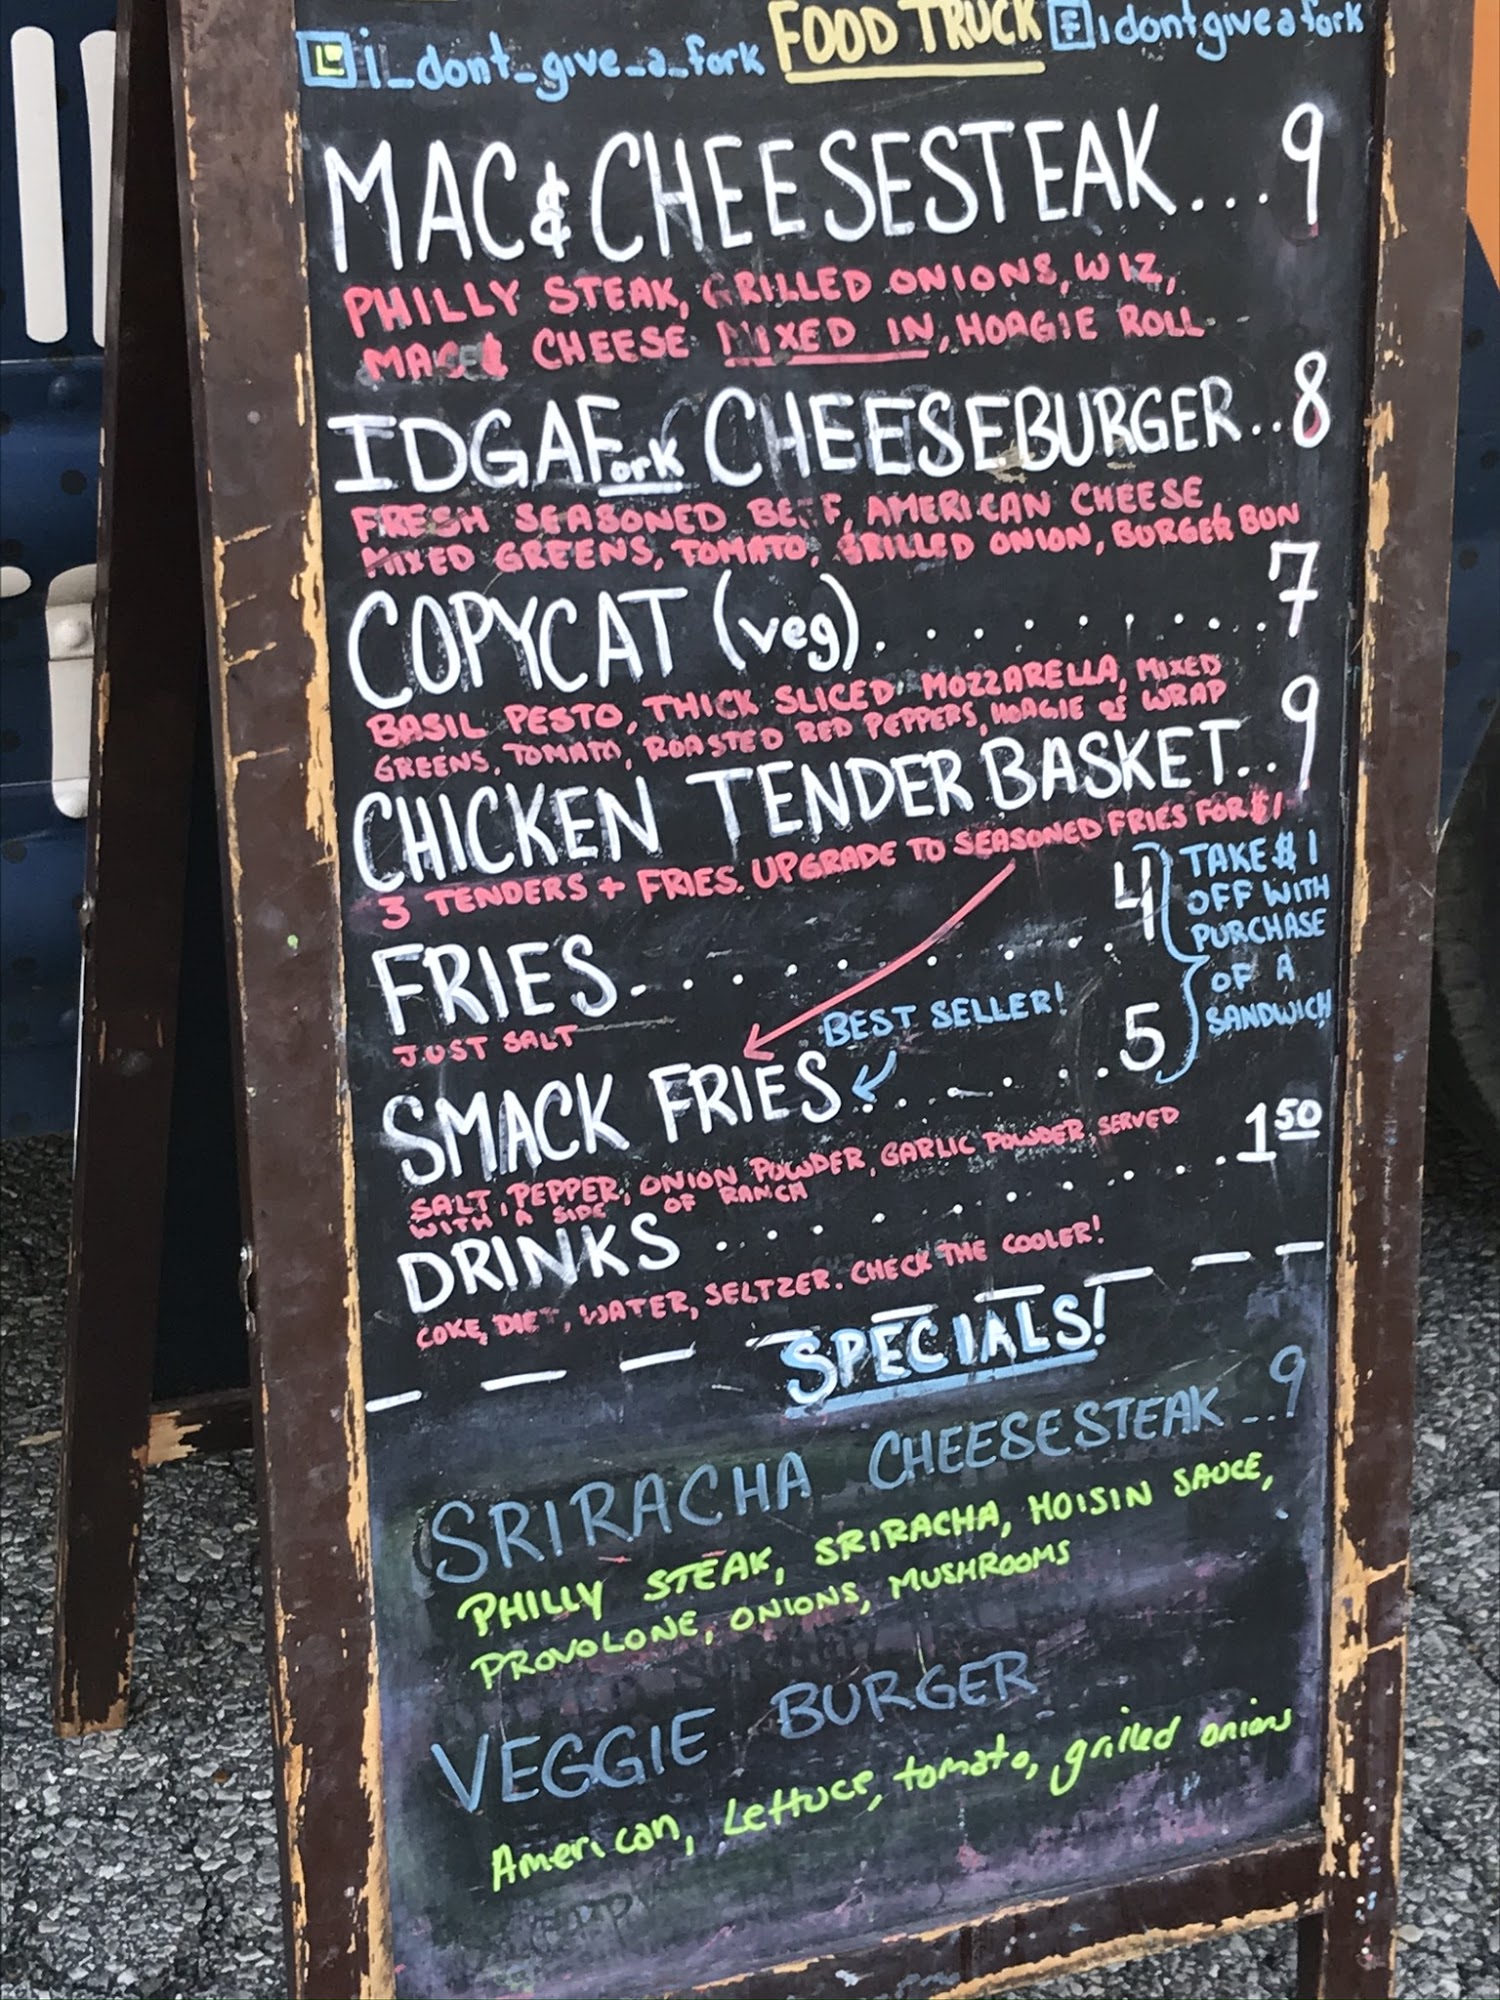 i_dont_give_a_fork FOOD TRUCK f idontgiveafork
MAC & CHEESESTEAK...9
PHILLY STEAK, GRILLED ONIONS, WIZ,
MAC & CHEESE MIXED IN, HOAGIE ROLL
IDGAFork CHEESEBURGER..8
FRESH SEASONED BEEF, AMERICAN CHEESE
MIXED GREENS, TOMATO, GRILLED ONION, BURGER BUN
COPYCAT (veg)..........7
BASIL PESTO, THICK SLICED MOZZARELLA, MIXED
GREENS, TOMATO, ROASTED RED PEPPERS, HOAGIE or WRAP
CHICKEN TENDER BASKET..9
3 TENDERS + FRIES. UPGRADE TO SEASONED FRIES FOR $1
FRIES..........4
JUST SALT
TAKE $1
OFF WITH
PURCHASE
OF A
SANDWICH
BEST SELLER!
SMACK FRIES........5
SALT, PEPPER, ONION POWDER, GARLIC POWDER SERVED
WITH A SIDE OF RANCH
DRINKS............1 50
COKE, DIET, WATER, SELTZER. CHECK THE COOLER!
SPECIALS!
SRIRACHA CHEESESTEAK...9
PHILLY STEAK, SRIRACHA, HOISIN SAUCE,
PROVOLONE, ONIONS, MUSHROOMS
VEGGIE BURGER
American, Lettuce, tomato, grilled onions